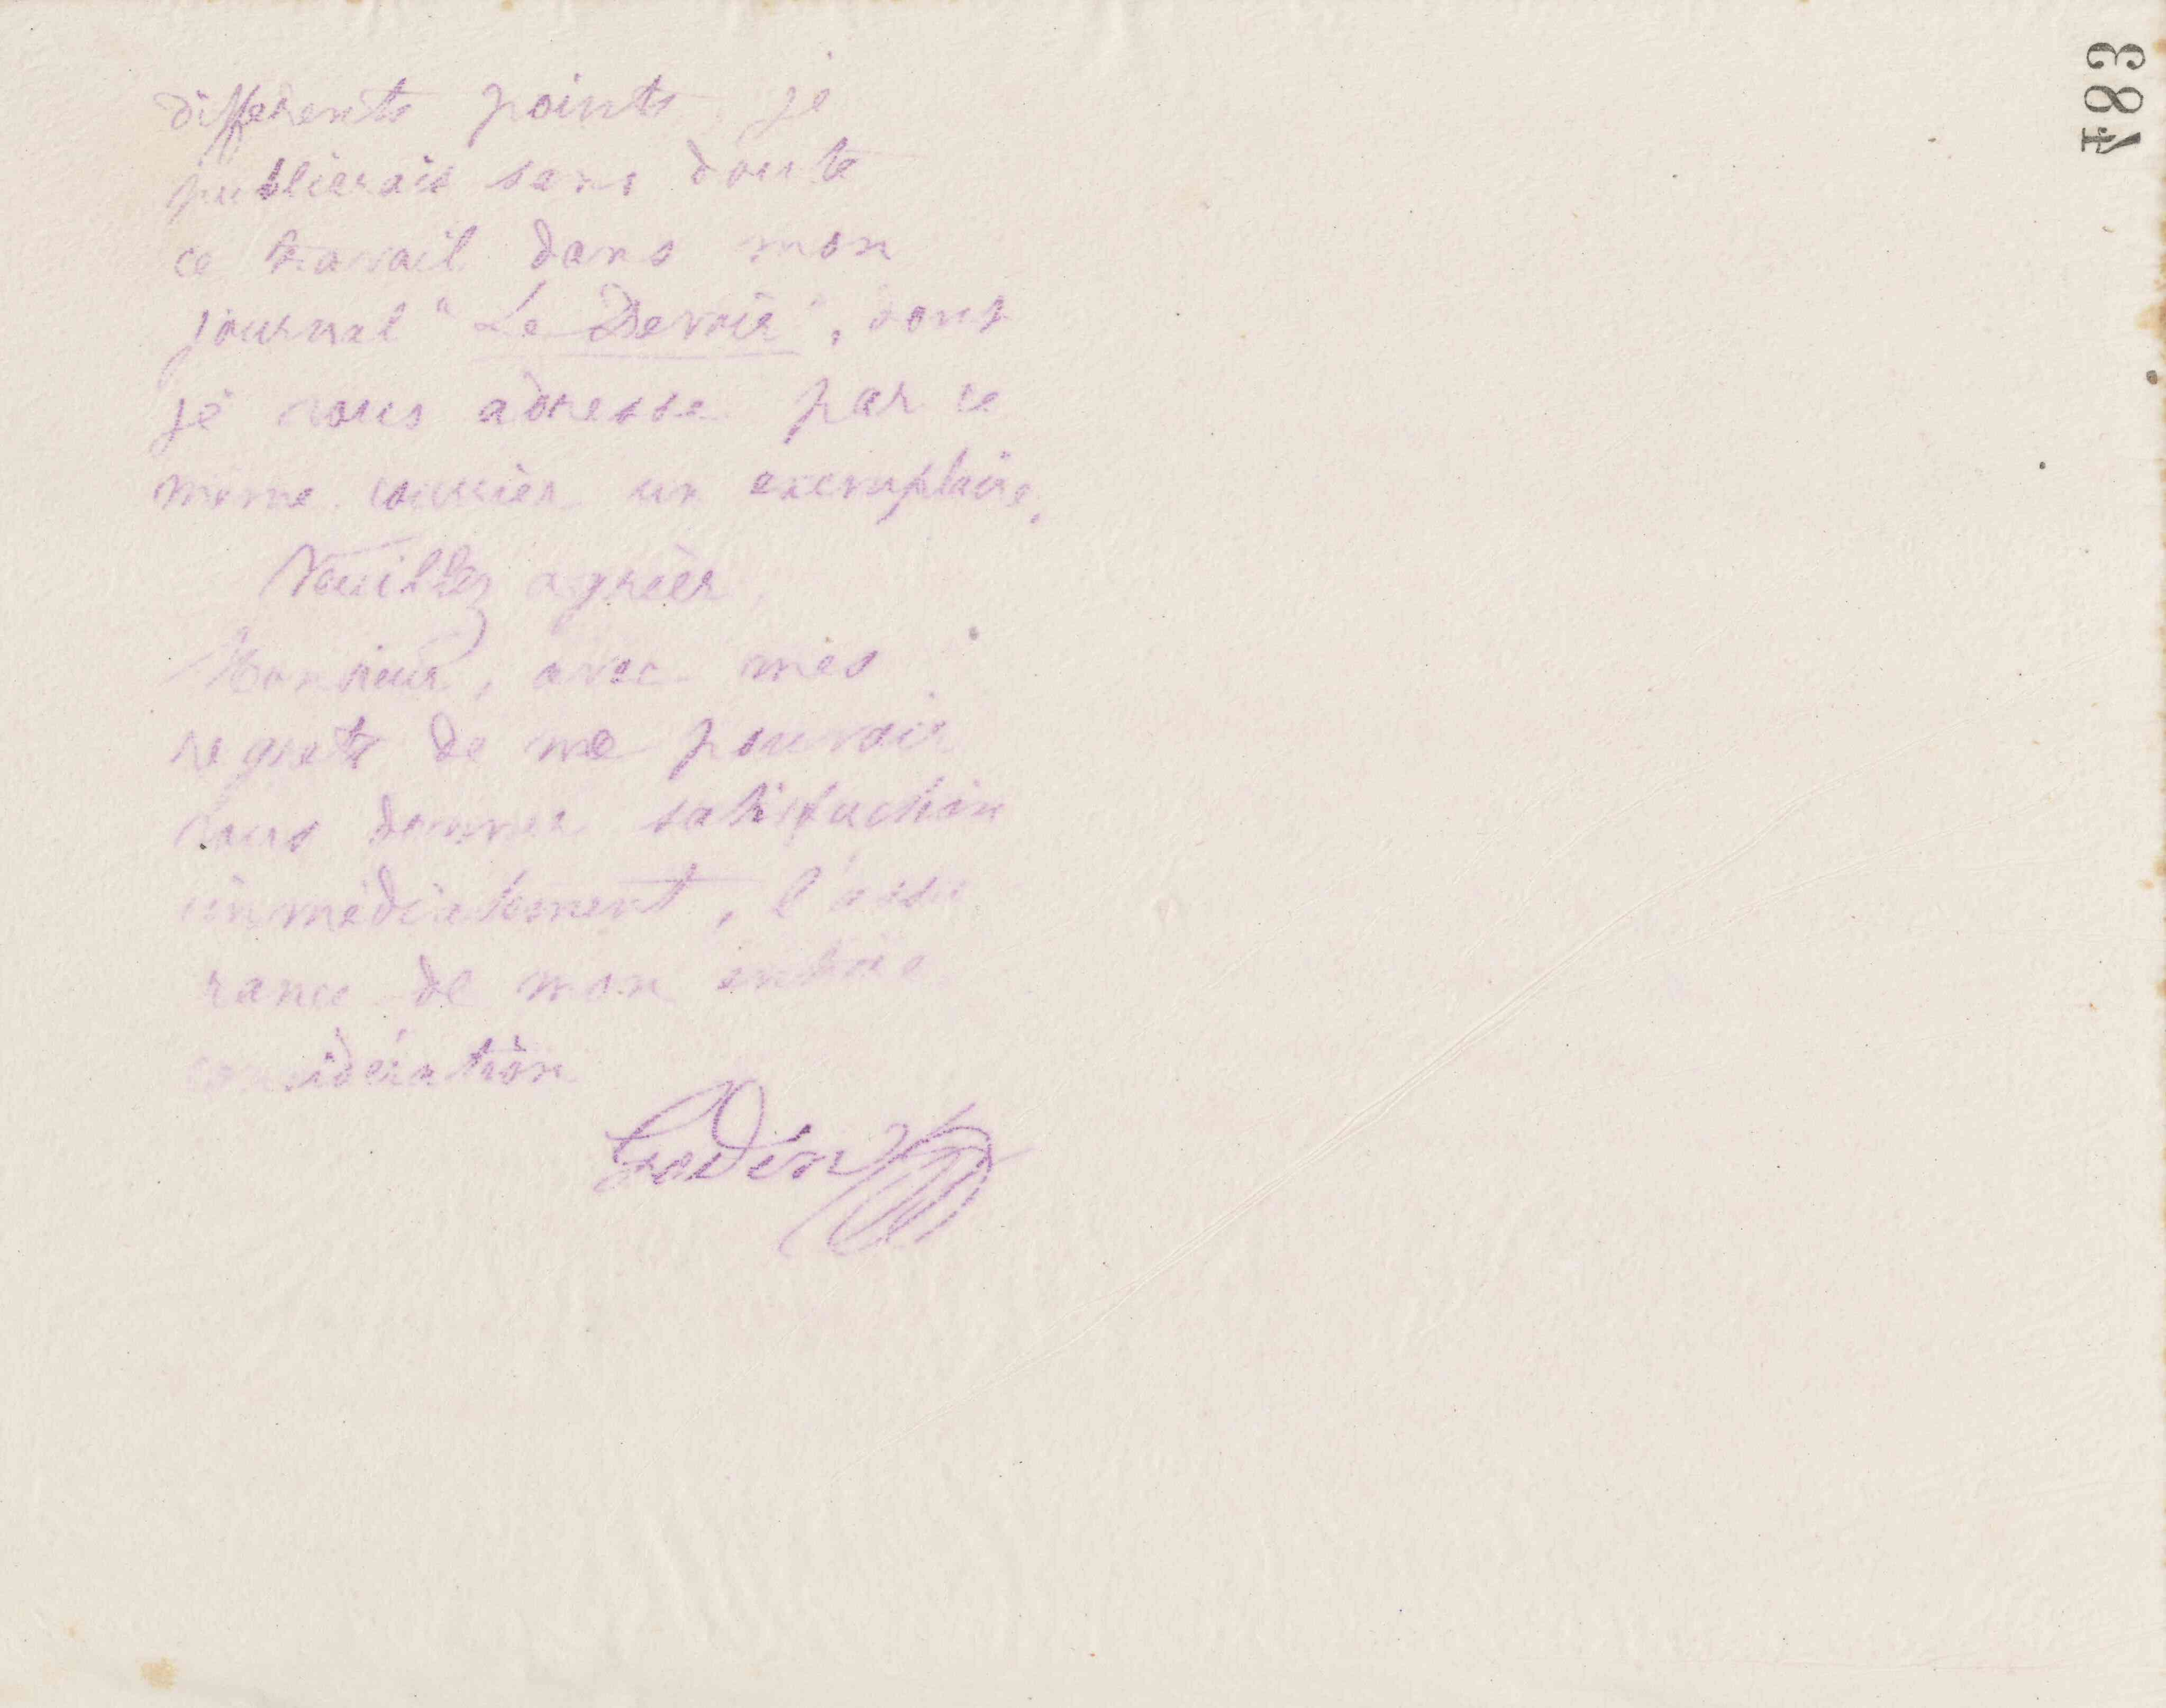 différents points je
publierais sans doute
ce travail dans mon
journal "Le Devoir", dont
je vous adresse par ce
même courrier un exemplaire.
Veuillez agréer,
Monsieur, avec mes
regrets de ne pouvoir
vous donner satisfaction
immédiatement, l'assu
rance de mon entière
considération
Godin
483